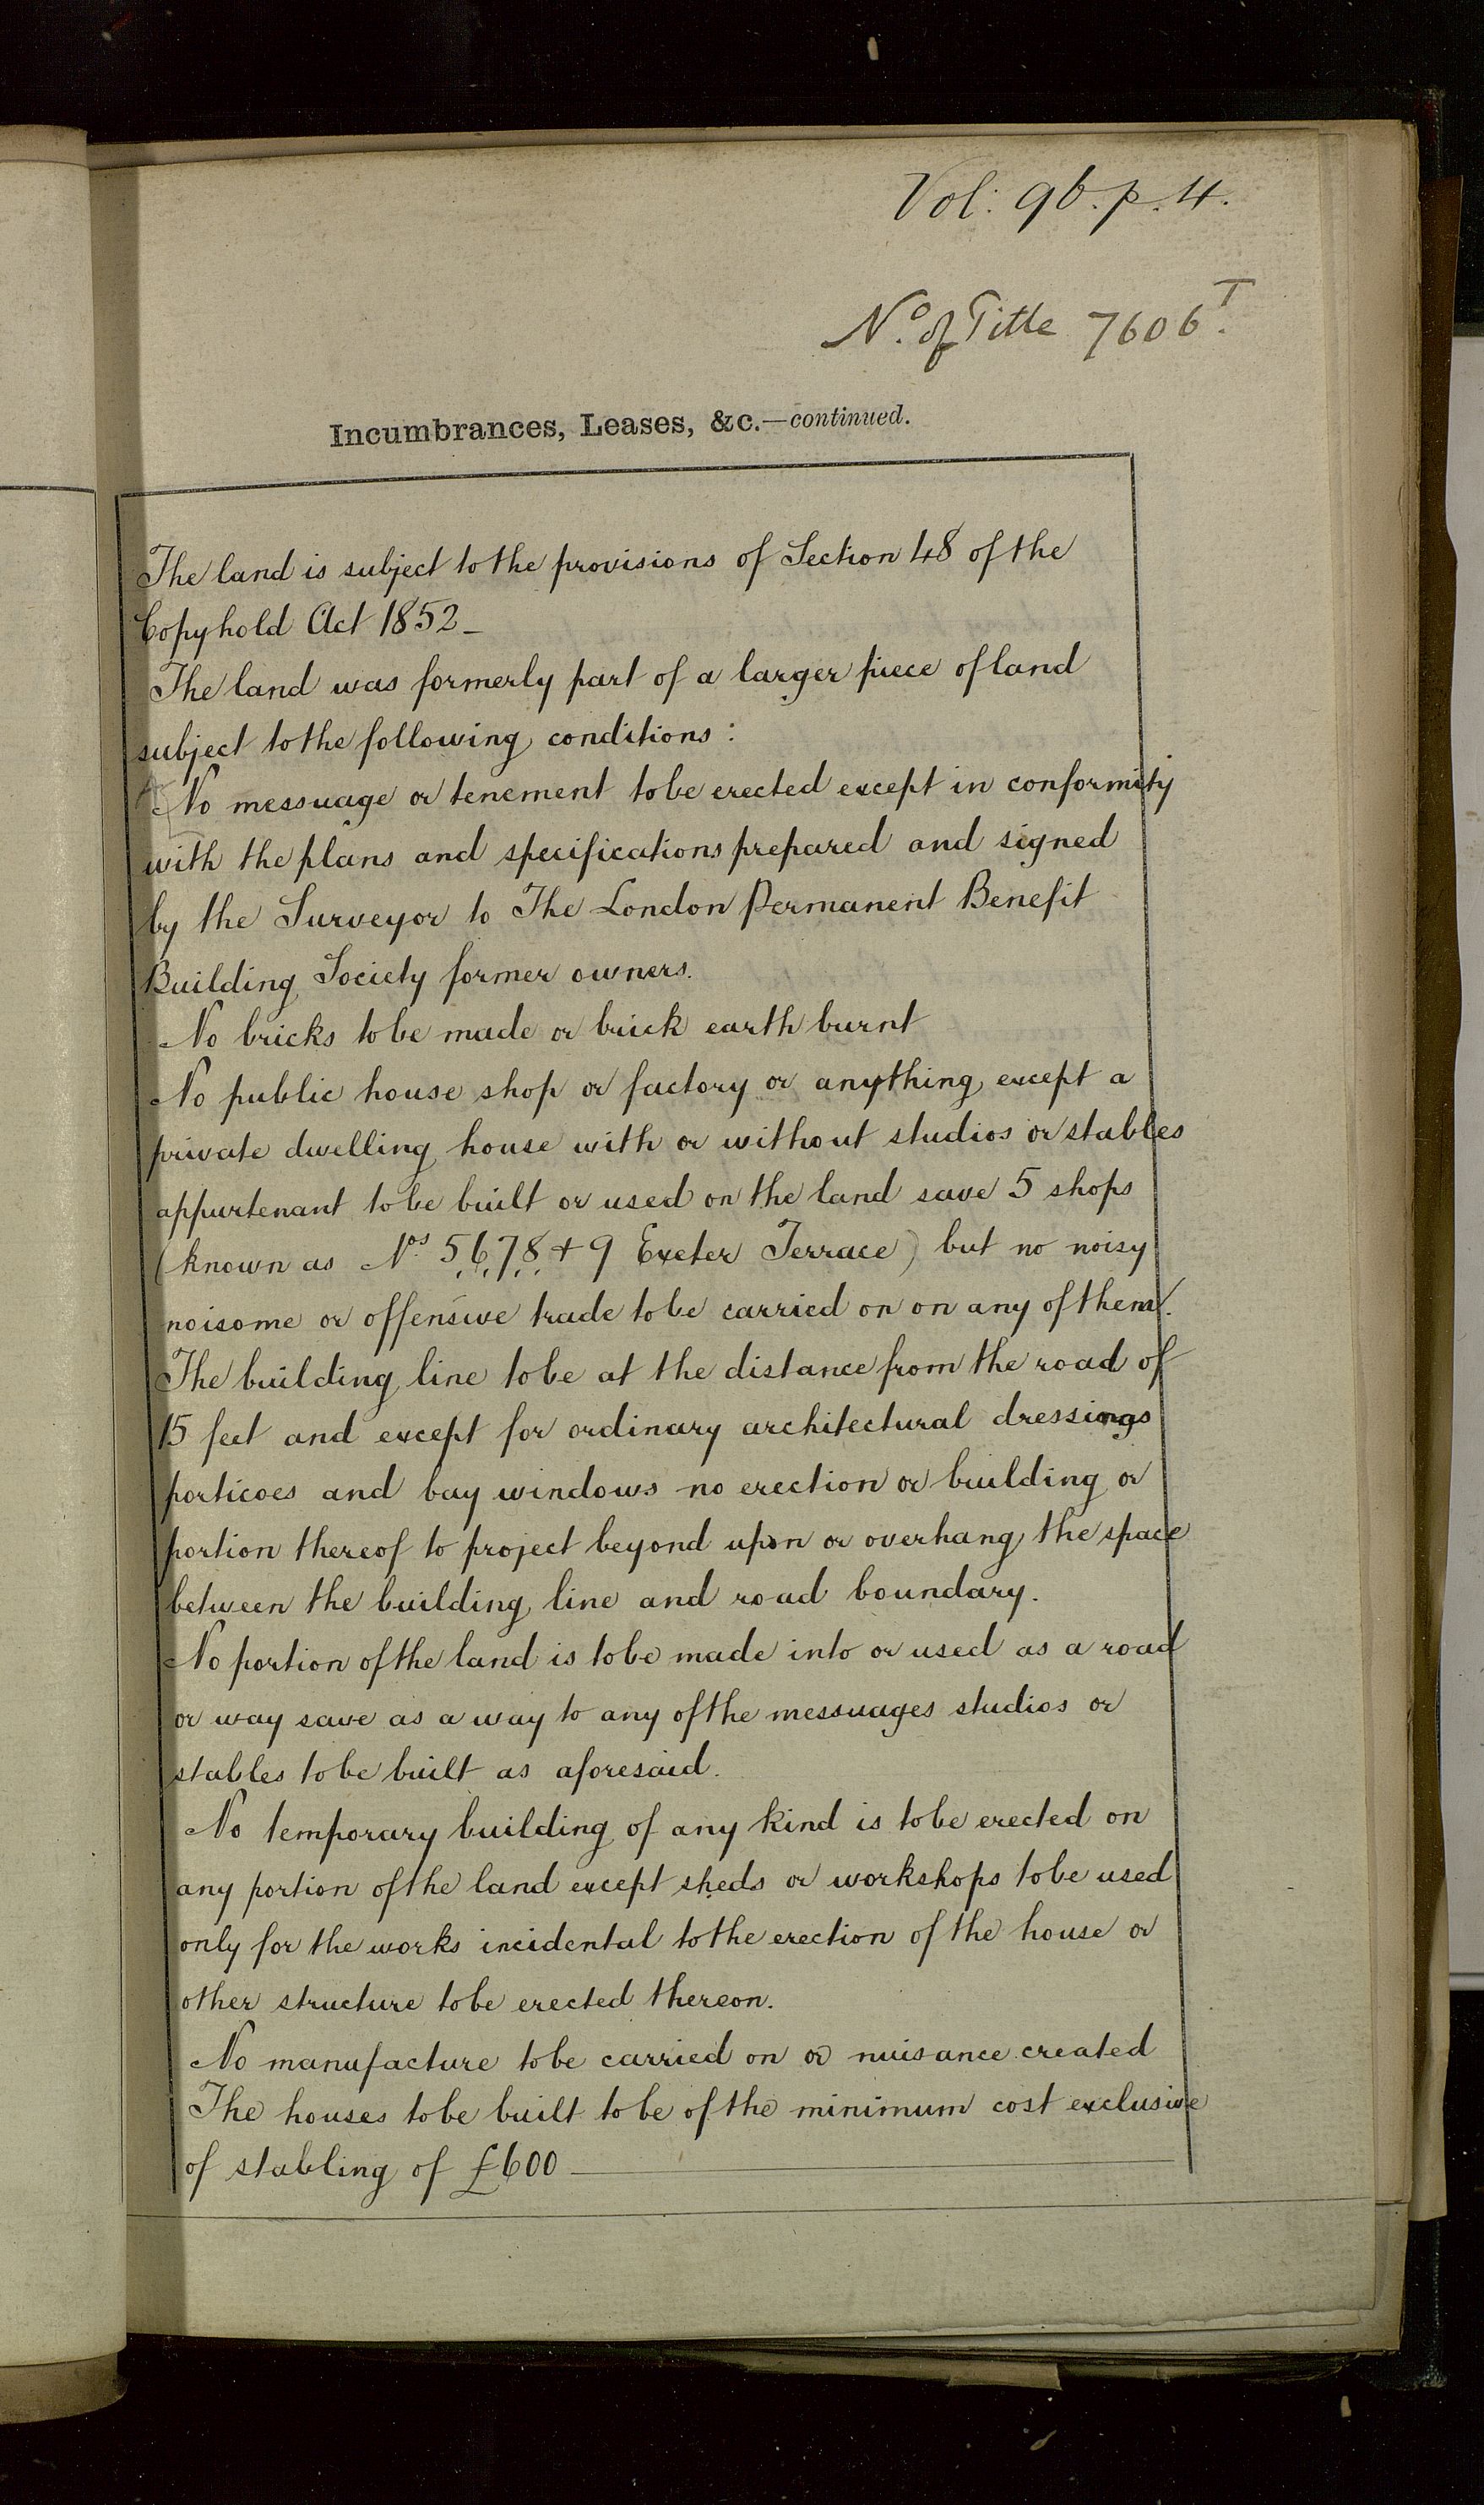 Vol: 96. p. 4.
No. of Title 7606 T.
Incumbrances, Leases, &c.—continued.
The land is subject to the provisions of Section 48 of the
Copyhold Act 1852_
The land was formerly part of a larger piece of land
subject to the following conditions :
No messuage or tenement to be erected except in conformity
with the plans and specifications prepared and signed
by the Surveyor to The London Permanent Benefit
Building Society former owners.
No bricks to be made or brick earth burnt
No public house shop or factory or anything except a
private dwelling house with or without studios or stables
appurtenant to be built or used on the land save 5 shops
(known as Nos 5, 6, 7, 8, + 9 Exeter Terrace) but no noisy
noisome or offensive trade to be carried on on any of them.
The building line to be at the distance from the road of
15 feet and except for ordinary architectural dressings
porticoes and bay windows no erection or building or
portion thereof to project beyond upon or overhang the space
between the building line and road boundary.
No portion of the land is to be made into or used as a road
or way save as a way to any of the messuages studios or
stables to be built as aforesaid.
No temporary building of any kind is to be erected on
any portion of the land except sheds or workshops to be used
only for the works incidental to the erection of the house or
other structure to be erected thereon.
No manufacture to be carried on or nuisance created
The houses to be built to be of the minimum cost exclusive
of stabling of £600